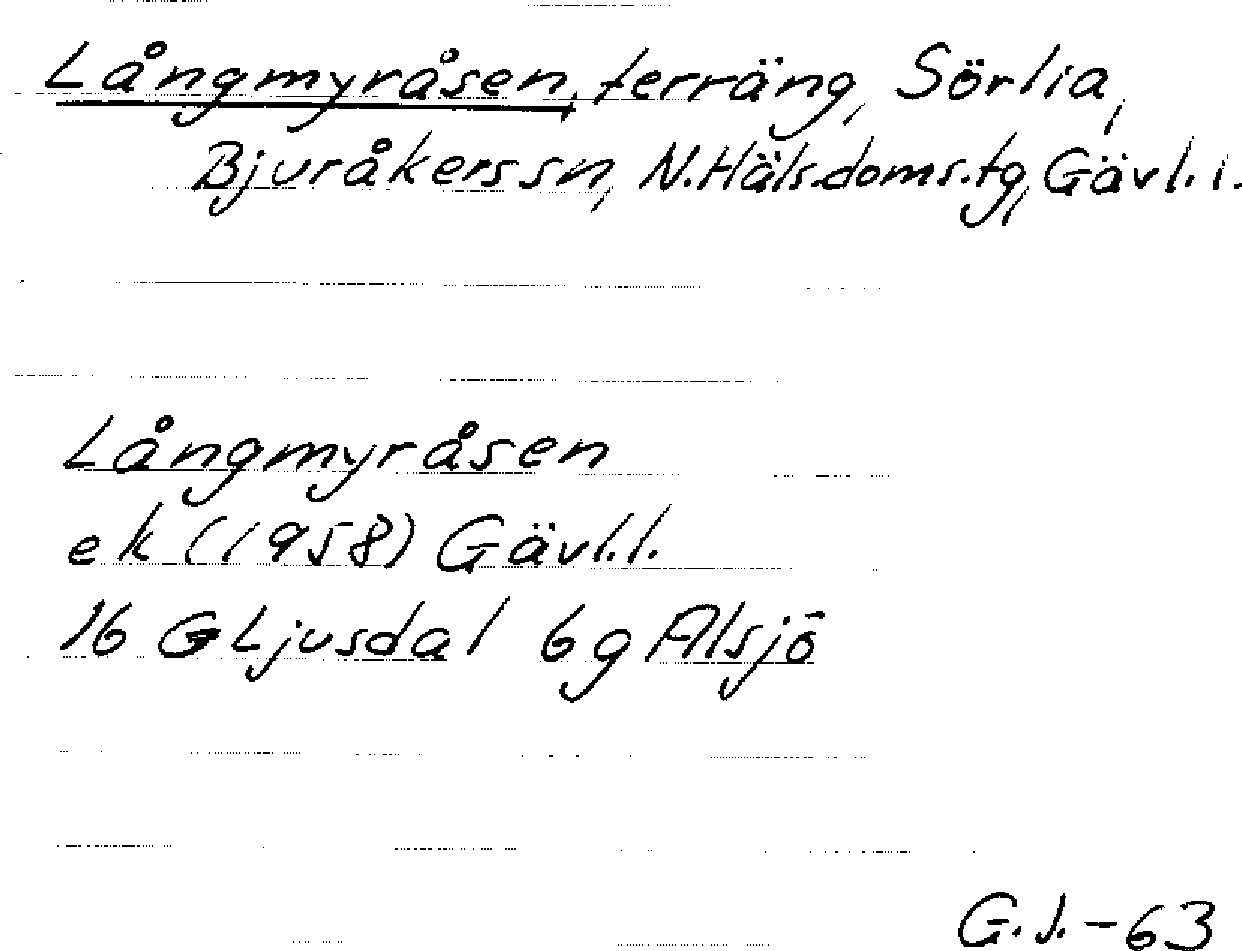 Långmyråsen, terräng, Sörlia,
Bjuråkers sn, N. Häls. doms. tg, Gävl. l.
Långmyråsen
ek (1958) Gävl. l.
16 G Ljusdal 6g Alsjö
G.J. -63